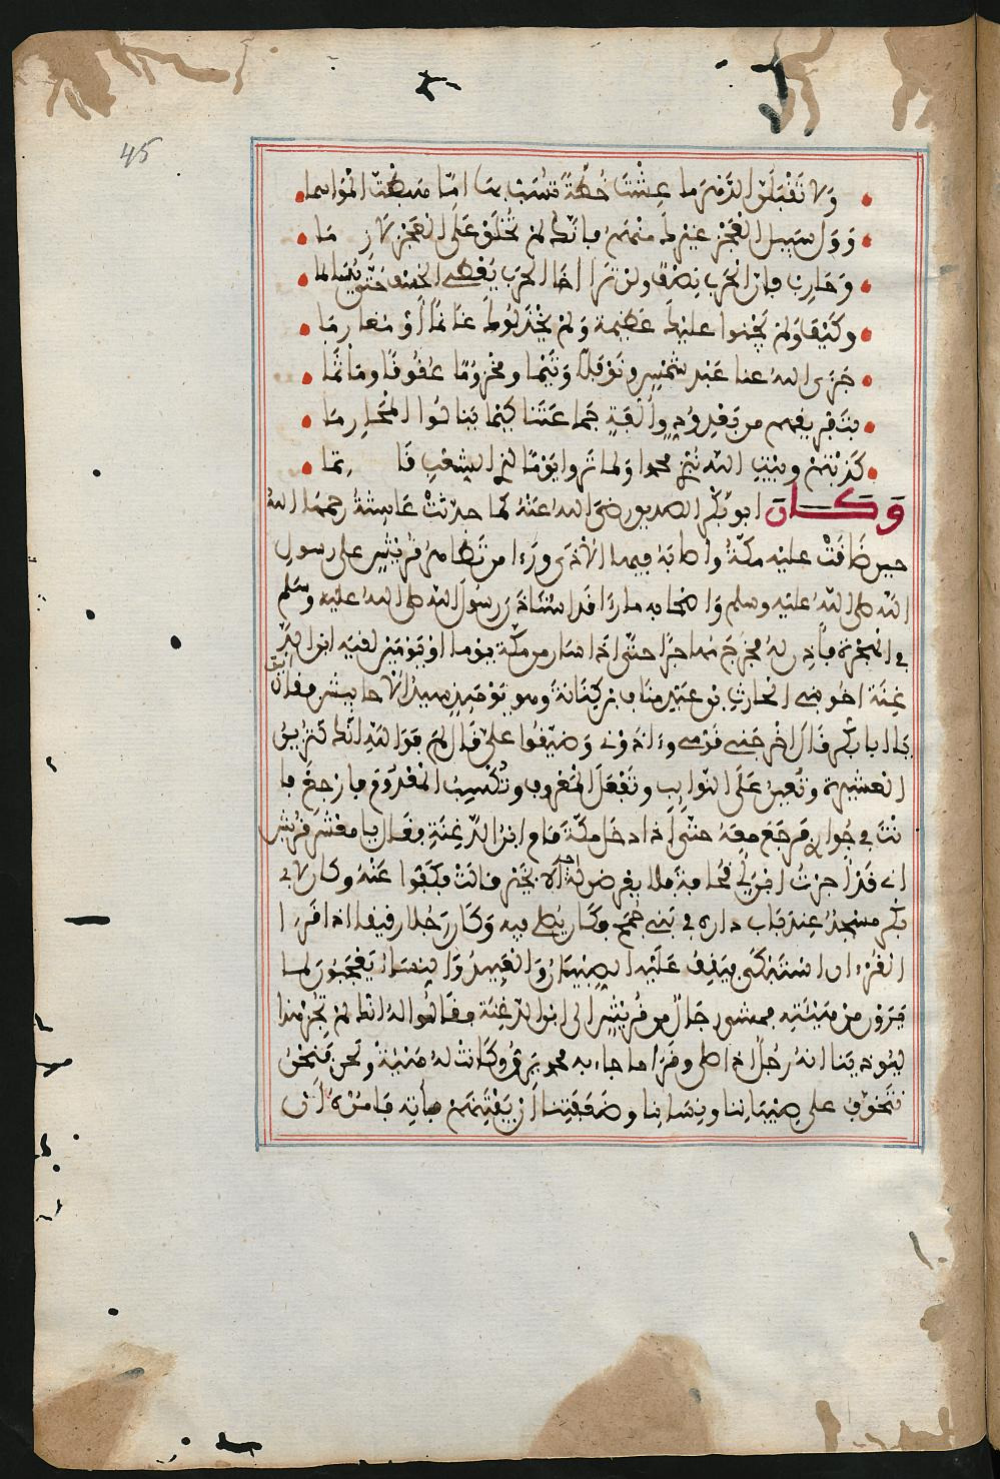 45
ولا تقبلن الدهر ما عشت خطة تسب بها اما هبطت المواسما
وول سبيل العجز غيرك منهم فانك لم تخلق على العجز لازما
وحارب فان الحرب نصف ولن ترا اخا الحرب يعطي الخسف حتى يسالما
وكيف ولم يجنوا عليك عظيمة ولم يخذلوك غانما او مغارما
جزى الله عنا عبد شمس ونوفلا وتيما ومخزوما عقوقا وماثما
بتفريقهم من بعد ود والفة جماعتنا كيما ينالوا المحارما
كذبتم وبيت الله نبزى محمدا ولما تروا يوما لدى الشعب قا يما
وكان ابو بكر الصديق رضى الله عنه كما حدثت عايشة رحمها الله
حين ضاقت عليه مكة واصابه فيها الاذى وراى من تظاهر قريش على رسول
الله صلى الله عليه وسلم واصحابه ما راى قد استاذن رسول الله صلى الله عليه وسلم
في الهجرة فاذن له فخرج مهاجرا حتى اذا سار من مكة يوما او يومين لقيه ابن الد
غنة اخو بني الحارث بن عبد مناف بن كنانة وهو يومئذ سيد الاحابيش فقال اين
يا ابا بكر قال اخرجني قومي واذوني وضيقوا علي قال لم فوالله انك لتزين
العشيرة وتعين على النوايب وتفعل المعروف وتكسب المعدوم فارجع فا
نت في جواري فرجع معه حتى اذا دخل مكة قام ابن الدغنة فقال يا معشر قريش
اني قد اجرت ابن ابي قحافة فلا يعرض له احد الا بخير قالت فكفوا عنه وكان لابي
بكر مسجد عند باب داره في بني جمح فكان يصلي فيه وكان رجلا رقيقا اذا قرا
القرءان استبكى فيقف عليه الصبيان والعبيد والنساء يعجبون لما
يرون من هيئته فمشى رجال من قريش الى ابن الدغنة فقالوا له انك لم تجر هذا
ليوذينا انه رجل اذا صلى وقرا ما جاء به محمد يرق وكانت له هيئة ونحن
نتخوف على صبياننا ونسائنا وضعفتنا ان يفتنهم فأته فامره ان